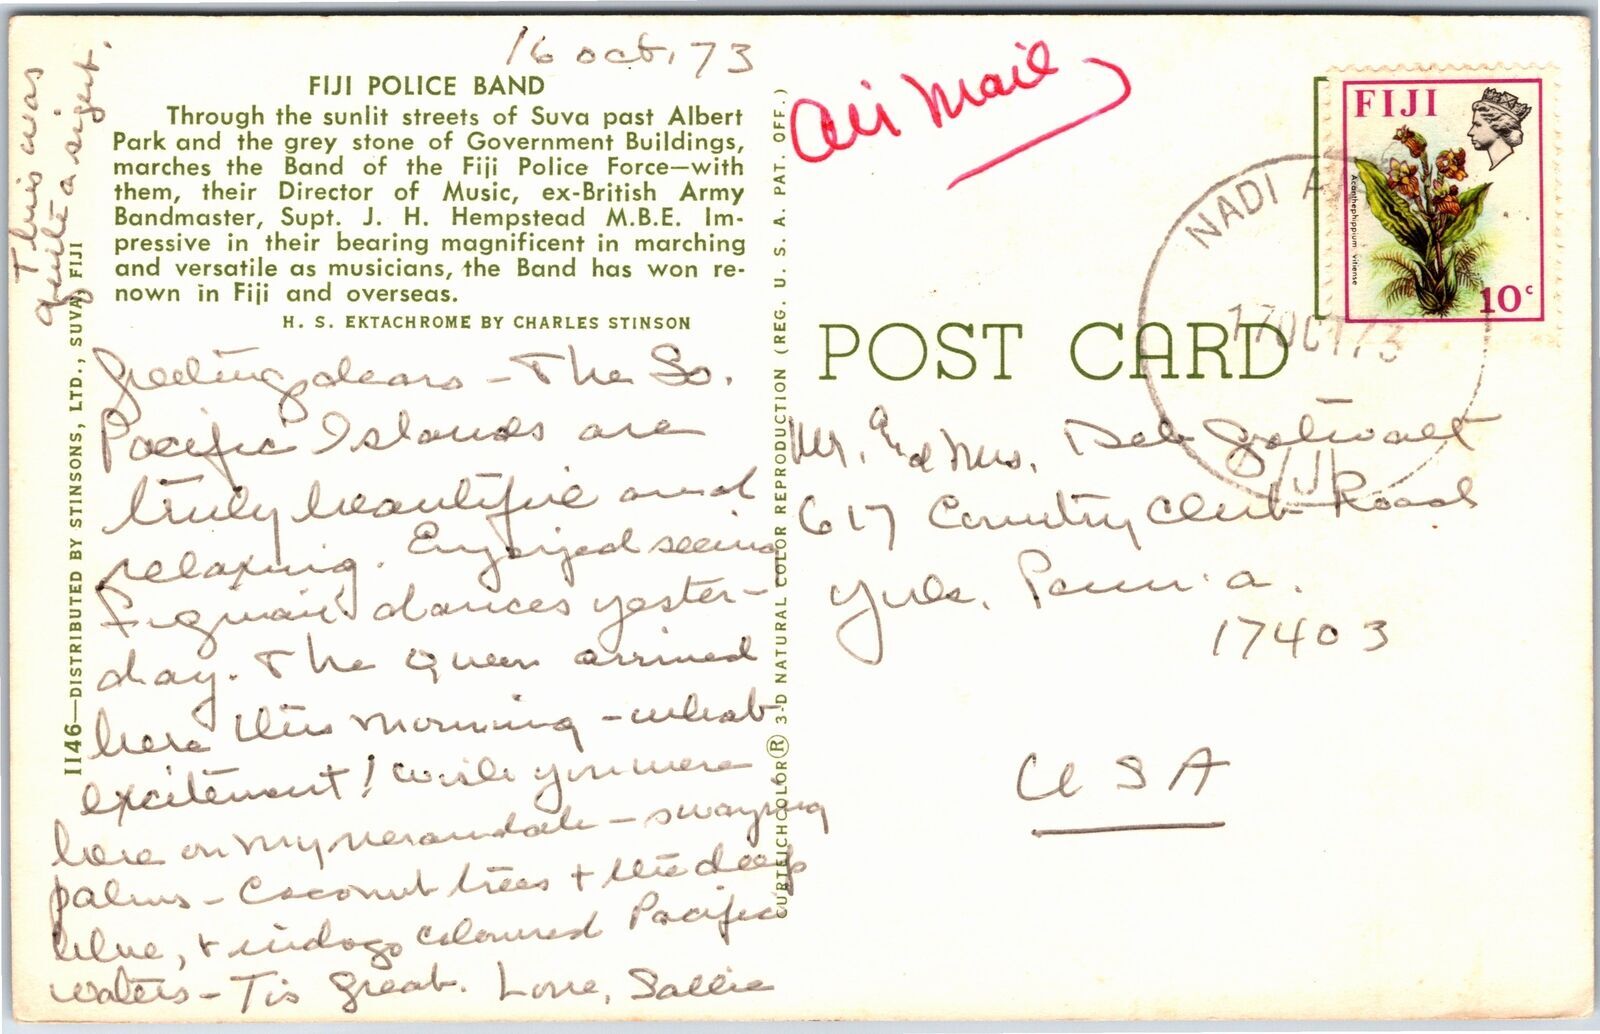 16 Oct, 73
This was
quite a sight.
FIJI POLICE BAND
Through the sunlit streets of Suva past Albert
Park and the grey stone of Government Buildings,
marches the Band of the Fiji Police Force—with
them, their Director of Music, ex-British Army
Bandmaster, Supt. J. H. Hempstead M.B.E. Im-
pressive in their bearing magnificent in marching
and versatile as musicians, the Band has won re-
nown in Fiji and overseas.
H. S. EKTACHROME BY CHARLES STINSON
1146—DISTRIBUTED BY STINSONS, LTD., SUVA, FIJI
Greetings dears – The So.
Pacific Islands are
truly beautiful and
relaxing. Enjoyed seeing
dances yester-
day. The Queen arrived
here this morning – what
excitement! Wish you were
here on my verandah – swaying
palms – Coconut trees + the deep
blue, + indogo coloured Pacific
waters – Tis great. Love, Sallie
CURTEICHCOLOR® 3-D NATURAL COLOR REPRODUCTION (REG. U. S. A. PAT. OFF.)
Air Mail
POST CARD
FIJI
Acanthephippium vitiense
10c
NADI A
17 OCT 73
FIJI
Mr. and Mrs.
617 Country Club Road
York, Penn'a.
17403
USA